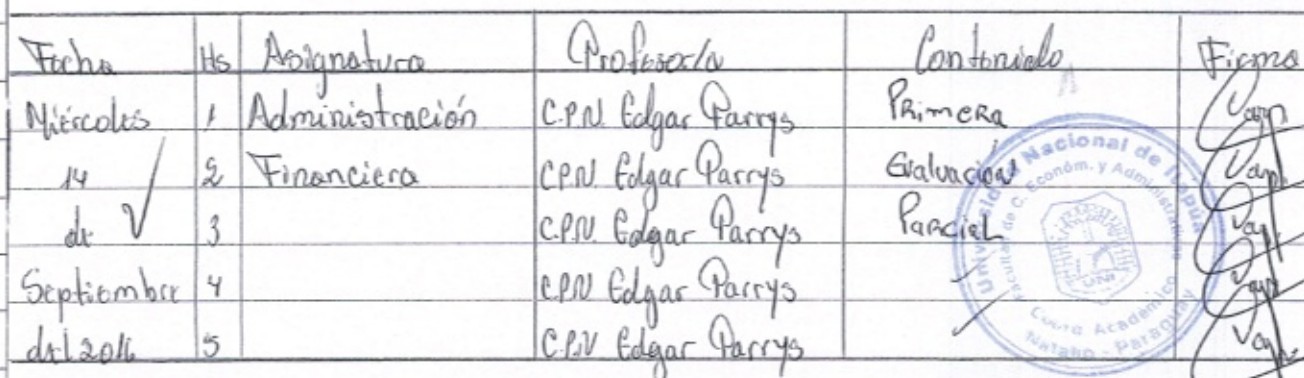 Fecha Hs Asignatura Profesor/a Contenido Firma
Miércoles 1 Administración C.P.N. Edgar Parrys Primera
14 2 Financiera C.P.N. Edgar Parrys Evaluación
de 3 C.P.N. Edgar Parrys Parcial
Septiembre 4 C.P.N. Edgar Parrys
del 2016 5 C.P.N. Edgar Parrys
Universidad Nacional de Itapúa
Facultad de C. Económ. y Administrativas
UNI
Académico
Natalio - Paraguay